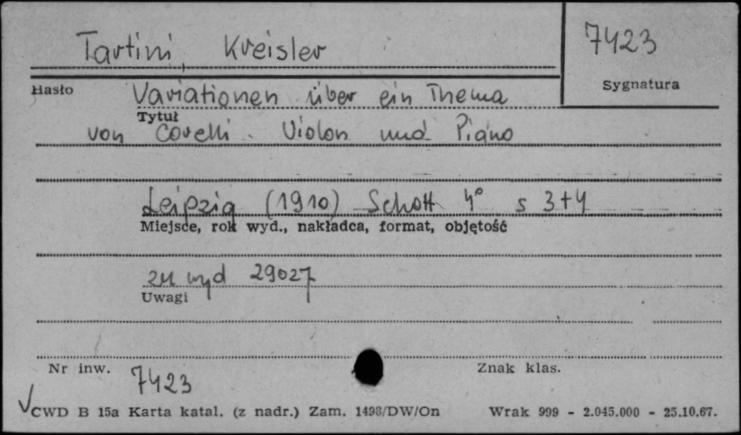 Tartini, Kreisler
7423
Hasło
Sygnatura
Variationen über ein Thema
Tytuł
von Corelli. Violon und Piano
Leipzig (1910) Schott 4° s 3+4
Miejsce, rok wyd., nakładca, format, objętość
wyd 29027
Uwagi
Nr inw. 7423
Znak klas.
CWD B 15a Karta katal. (z nadr.) Zam. 1498/DW/On Wrak 999 - 2.045.000 - 25.10.67.